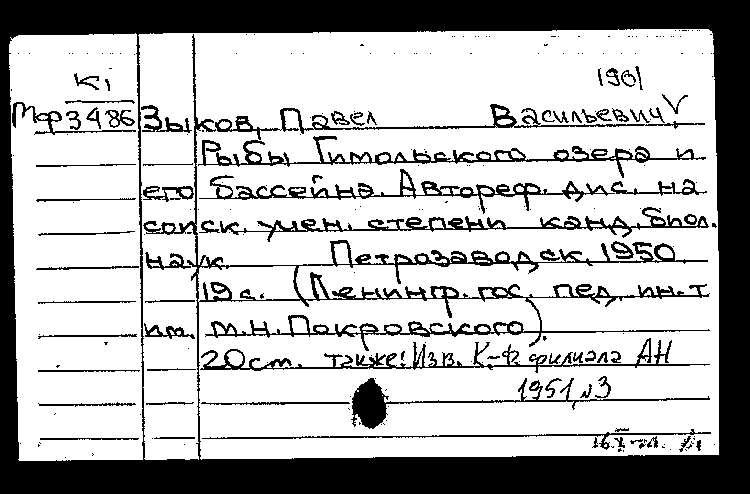 К1 1901
Мф3486 Зыков, Павел Васильевич
Рыбы Гимольского озера и
его бассейна. Автореф. дис. на
соиск. учен. степени канд. биол.
наук. Петрозаводск, 1950
19 с. (Ленингр. гос. пед. ин-т
им. М.Н. Покровского).
20 ст. также: Изв. К-Ф филиала АН
1951, №3